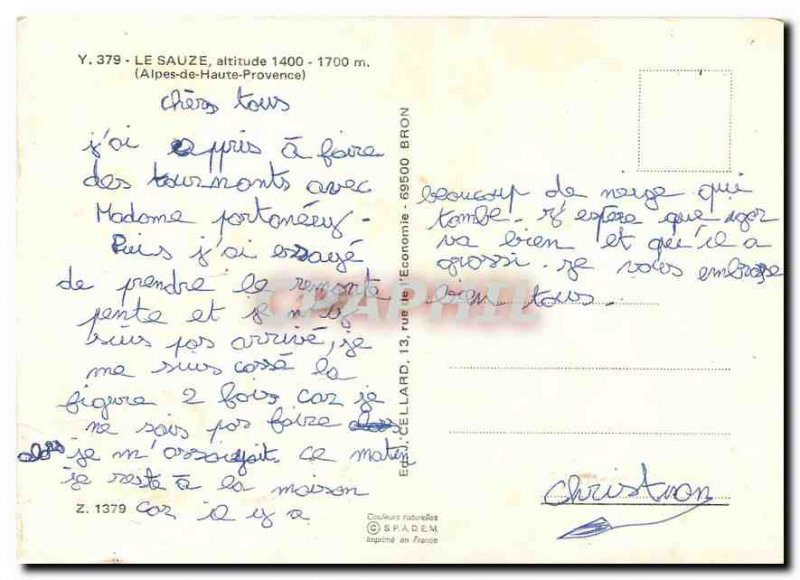 Y. 379 - LE SAUZE, altitude 1400 - 1700 m.
(Alpes-de-Haute-Provence)
chèrs tous
j'ai appris à faire
des tournants avec
Madame
Puis j'ai essayé
de prendre le remonte
pente et je n'y
suis pas arrivé, je
me suis cassé la
figure 2 fois car je
ne sais pas faire
alors je m'assoyait. ce matin
je reste à la maison
car il y a
Z. 1379
beaucoup de neige qui
tombe. J'espère que
va bien et qu'il a
grossi. je vous embrasse
bien tous.
Christian
Edit. CELLARD, 13, rue de l'Economie - 69500 BRON
Couleurs naturelles
© S.P.A.D.E.M.
Imprimé en France
CPAPHIL